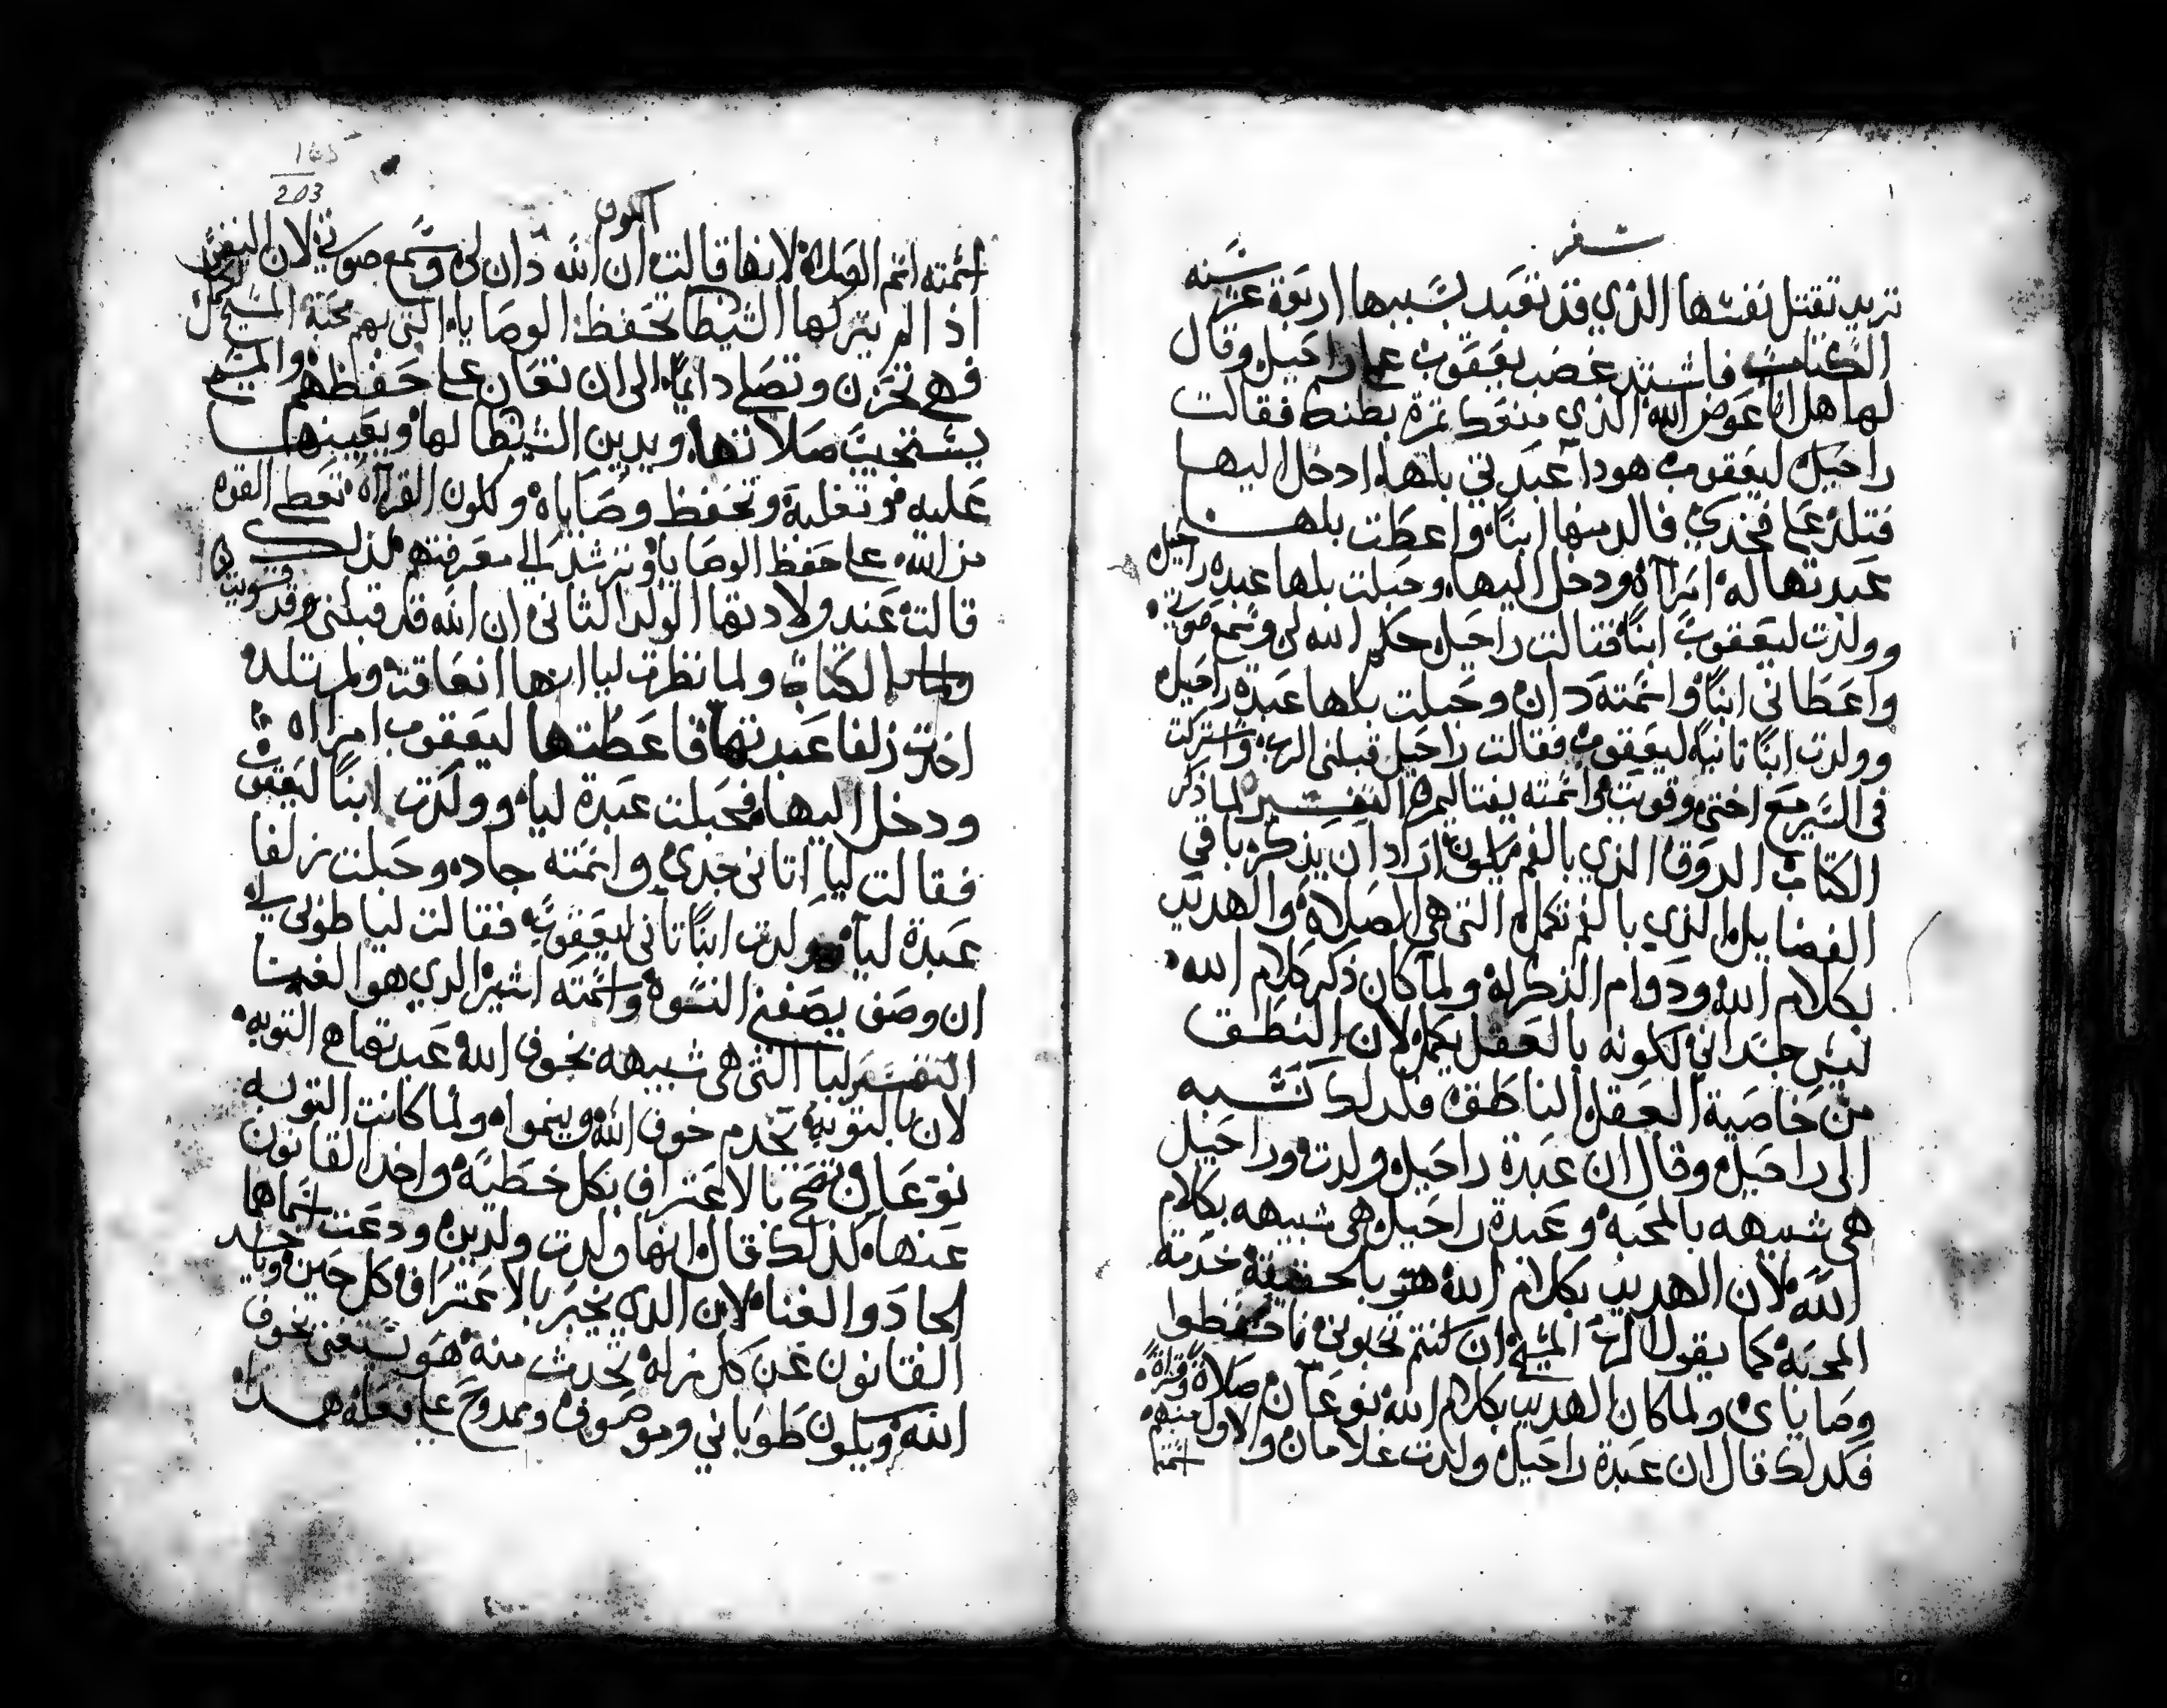 سفر
تريد تقتل نفسها الذي قد تعبد بسببها اربعة عشر سنه
الكتاب فاشتد غضب يعقوب على راحيل وقال
لها هل انا عوض الله الذي منعك ثمرة بطنك فقالت
راحيل ليعقوب هودا عبدتي بلها ادخل اليها
فتلد على فخدي فالد منها ابنًا واعطت بلها
عبدتها له امراآه ودخل اليها وحبلت بلها عبدة راحيل
وولدت ليعقوب ابنًا فقالت راحيل حكم الله لى وسمع صوتي
واعطاني ابنًا واسمته دان وحبلت بلها عبدة راحيل
وولدت ابنًا تانيًا ليعقوب فقالت راحيل قبلني الرب واشتركت
في السير مع اختي وقويت واسمته يفتاليم التفسير لما ذكر
الكتاب الدوق الذي بالفم اراد ان يذكر باقي
الفضايل الذي بالفم تكمل التي هي الصلاة والهديد
بكلام الله ودوام الذكر له ولما كان ذكر كلام الله
ليس جسداني لكونه بالعقل يكمل لان النطق
من خاصية العقل الناطق فلدلك نسبه
الى راحيل وقال ان عبدة راحيل ولدت وراحيل
هي شبيهه بالمحبه وعبدة راحيل هي شبيهه بكلام
الله لان الهديد بكلام الله هو بالحقيقة خدمة
المحبه كما يقول الرب المسيح ان كنتم تحبوني فاحفظوا
وصاياى ولما كان الهديد بكلام الله نوعان صلاة وقراة
فلدلك قال ان عبدة راحيل ولدت غلامان والاول منهم
اسمته
الكون
اسمته اسم الصلاه لانها قالت ان الله دان لى وسمع صوتي لان النفس
اذا لم يتركها الشيطان تحفظ الوصايا التي بهم محبة المسيح تكمل
فهي تحزن وتصلي دايمًا الى ان تعان على حفظهم والمسيح
يستجيب صلاتها ويدين الشيطان لها ويعينها
عليه وتغلبه وتحفظ وصاياه ولكون القرآاه تعطي القوه
من الله على حفظ الوصايا وترشد الى معرفتهم لذلك
قالت عند ولادتها الولد الثاني ان الله قد قبلني وقد قويت
الكتاب ولما نظرت ليا انها انعاقت ولم تلد
اخدت زلفا عبدتها فاعطتها ليعقوب امراه
ودخل اليها فحبلت عبدة ليا وولدت ابنًا ليعقوب
فقالت ليا اتاني جدى واسمته جاد وحبلت زلفا
عبدة ليا وولدت ابنًا تاني ليعقوب فقالت ليا طوبي لي
ان وصف يصفني النسوة واسمته اشير الدي هو الغنا
التفسير ليا التي هي شبيهه بخوف الله عبدتها هي التوبه
لان بالتوبه تخدم خوف الله وينموا ولما كانت التوبه
نوعان بالاعتراف بكل خطيه واخد القانون
عنها كذلك قال انها ولدت ولدين ودعت اسماهما
جاد والغنا لان الدي يخبر بالاعتراف كل حين
القانون عن كل زله تحدث منه هو يستغني بخوف
الله ويكون طوباني وموصوف وممدوح على فعله هدا